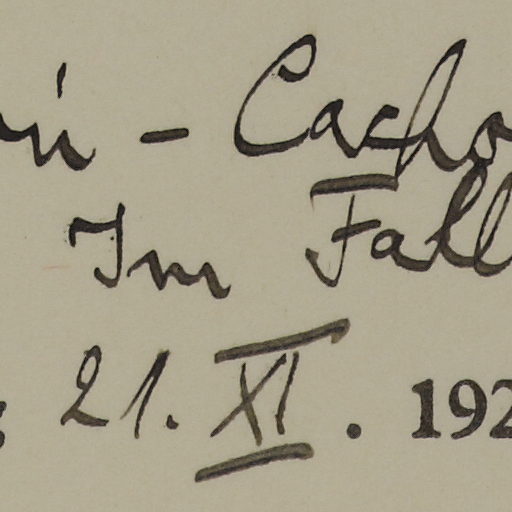 - Cacho
Im Fall
21. XI. 192